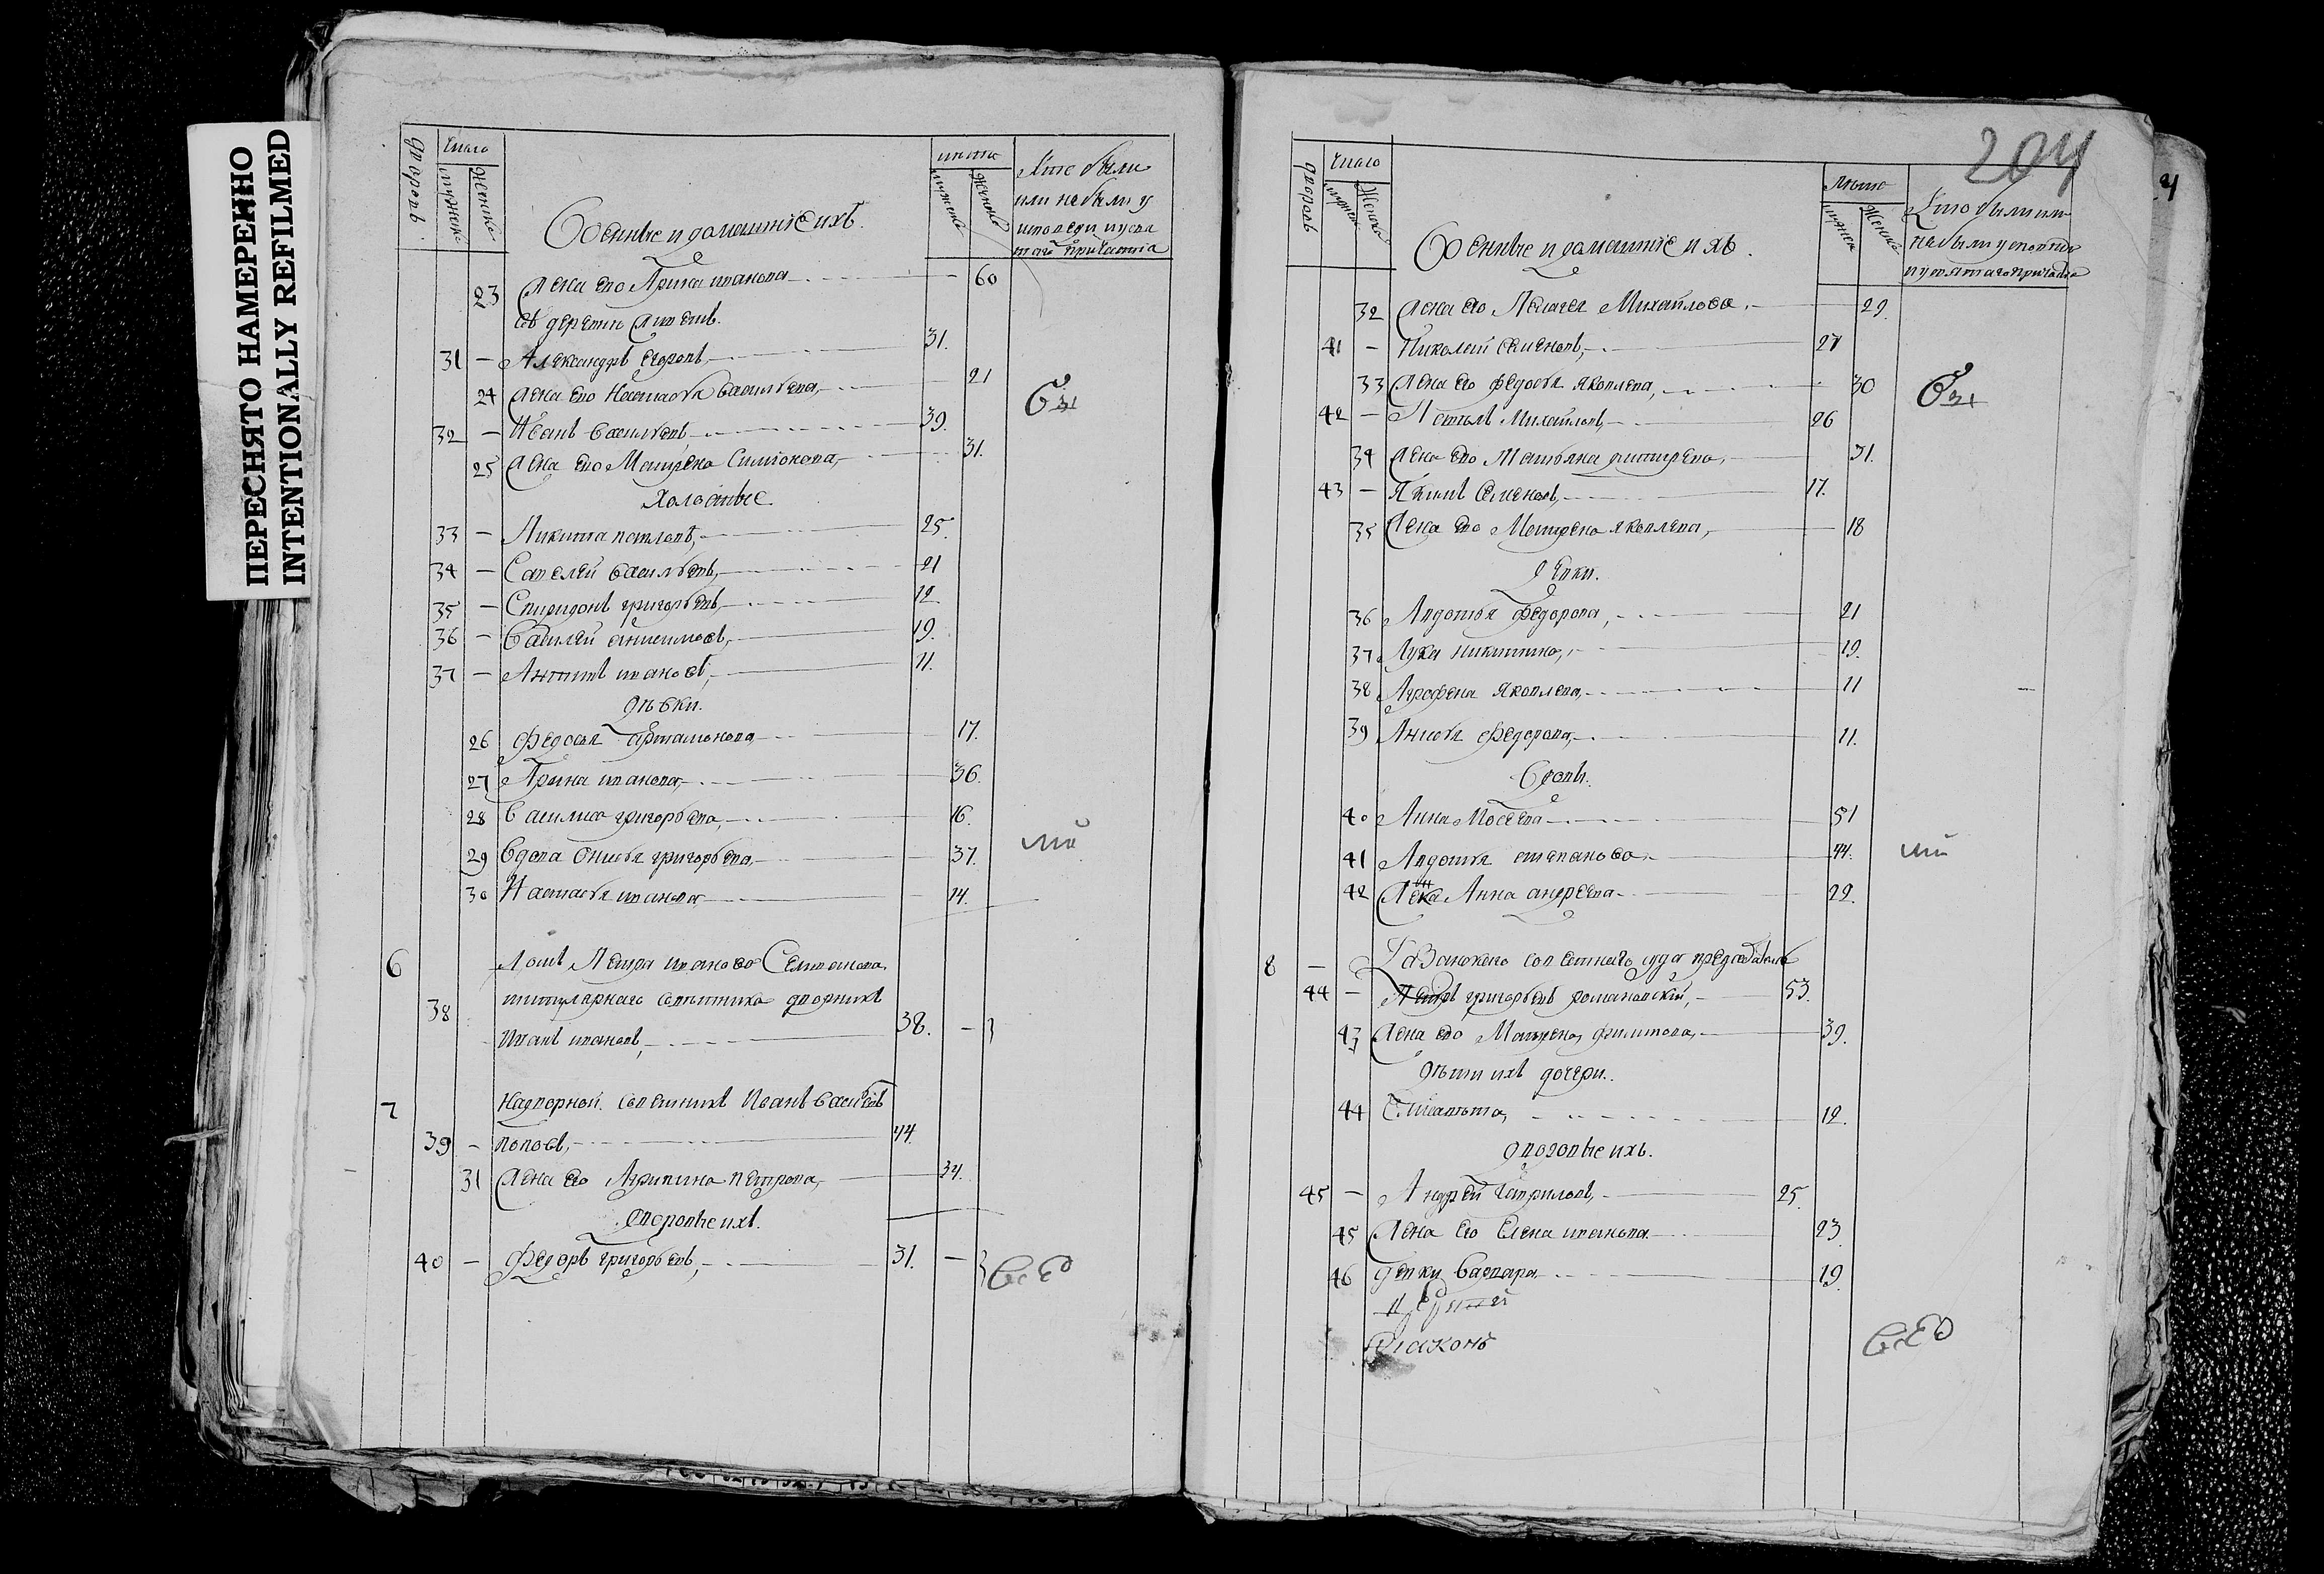 ПЕРЕСНЯТО НАМЕРЕННО
INTENTIONALLY REFILMED
дворовъ
Число
мужеска
женска
Военные и домашние ихъ.
лѣта
мужеска
женска
Кто были
или не были у
исповеди и свя
таго причастия
23 Жена ево Арина иванова 60
31 — Александръ егоровъ, 31.
24 Жена ево Настасья васильева, 21
32 — Иванъ васильевъ, 39.
25 Жена ево Матрена Симионова, 31.
Холостые.
33 — Никита павловъ, 25.
34 — Савелей васильевъ, 21
35 — Спиридонъ григорьевъ, 12.
36 — Василей анисимовъ, 19.
37 — Антипъ ивановъ, 11.
дѣвки.
26 Федосья артамонова, 17.
27 Арина иванова, 36.
28 Василиса григорьева, 16.
29 Вдова Онисья григорьева, 37.
30 Настасья иванова 14.
6 Петра иванова
титулярнаго советника дворникъ
38 Иванъ ивановъ, 38. —
7 Надворной советникъ Иванъ васильевъ
39 — поповъ, 44.
31 Жена его Агрипина петрова, 34.
Дворовые ихъ.
40 — Федоръ григорьевъ, 31. —
204
дворовъ
Число
мужеска
Женска
Военные и домашние ихъ.
Лѣта
мужеска
женска
Кто были или
не были у исповеди
и у святаго причастия
32 Жена ево Пелагея Михайлова. 29.
41 — Николай Семеновъ, 27
33 Жена его федосья яковлева, 30
42 — Михайловъ, 26
34 Жена ево Татьяна дмитрева, 31.
43 — Якимъ Семеновъ, 17.
35 Жена ево Матрена яковлева, 18
девки.
36 Авдотья федорова, 21
37 никитина, 19.
38 Аграфена яковлева, 11
39 Анисья федорова, 11.
вдовы.
40 Анна Мосеева 51
41 Авдотья степанова 44.
42 Анна андреева 22.
8 — совестнаго суда председатель
44 — Петръ григорьевъ романовский, 53.
43 Жена ево Матрена филипова, 39.
дѣти ихъ дочери.
44 Елисавета, 12.
дворовые ихъ.
45 — Андрей гавриловъ, 25.
45 Жена его Елена иванова 23.
46 девки варвара 19.
диаконъ